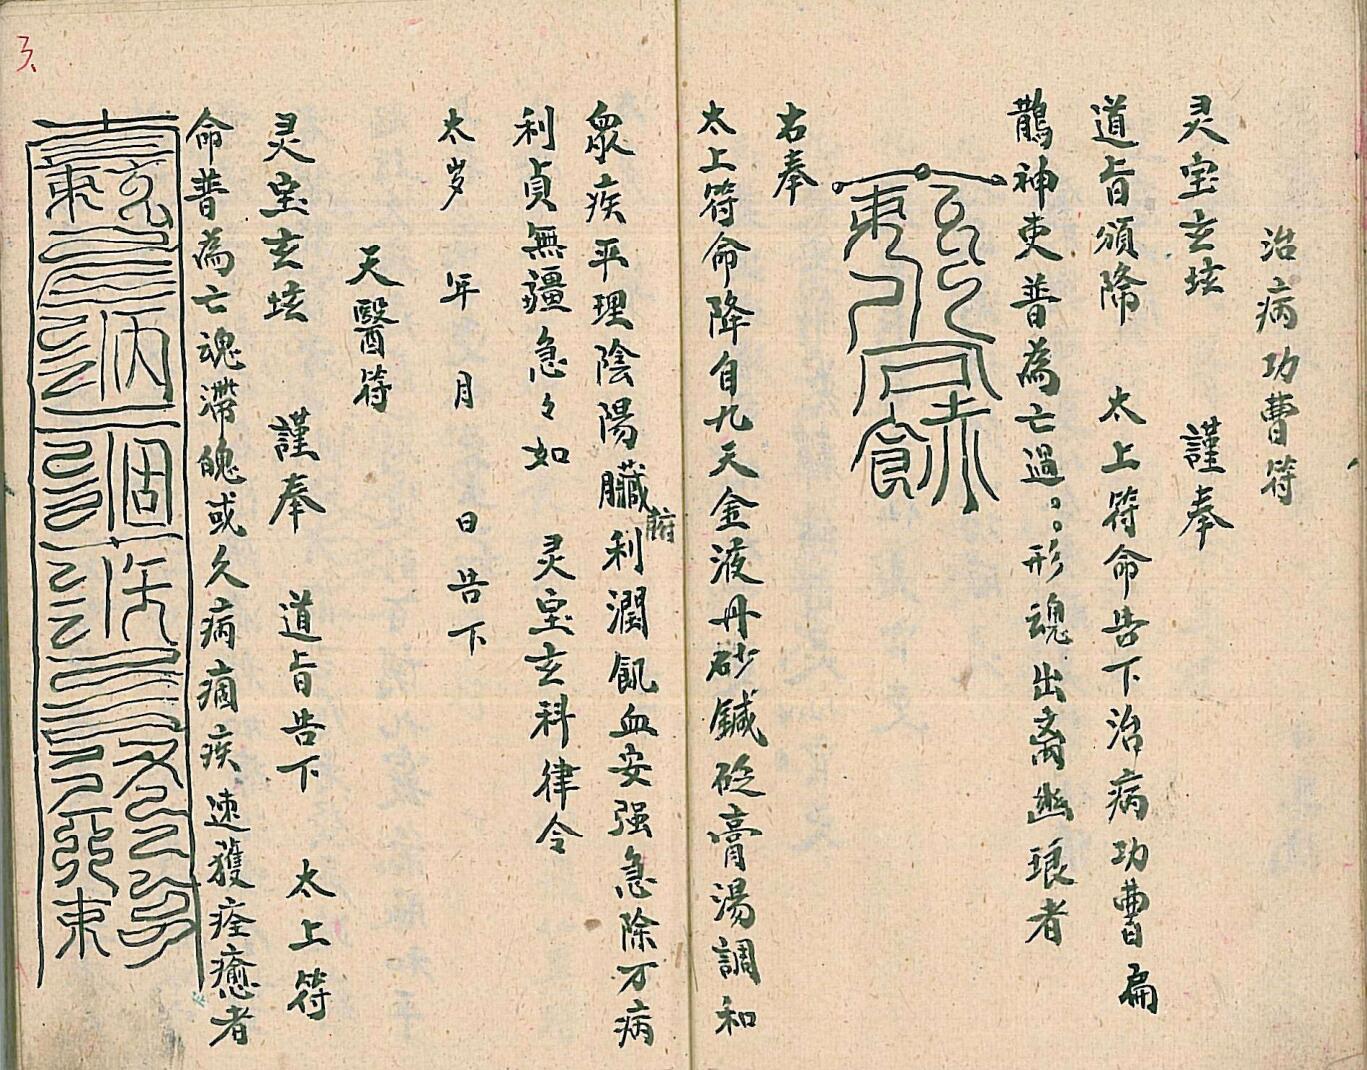 治病功曹符
灵宝玄坛 謹奉
道旨頒降 太上符命告下治病功曹扁
鵲神吏普為亡過。。形魂出离幽 者
右奉
太上符命降自九天金液丹砂鍼砭膏湯調和
衆疾平理陰陽臟腑利潤飢血安强急除万病
利貞無疆急々如 灵宝玄科律令
太岁 年 月 日告下
天醫符
灵宝玄坛 謹奉 道旨告下 太上符
命普為亡魂滯魄或久病痼疾速獲痊癒者